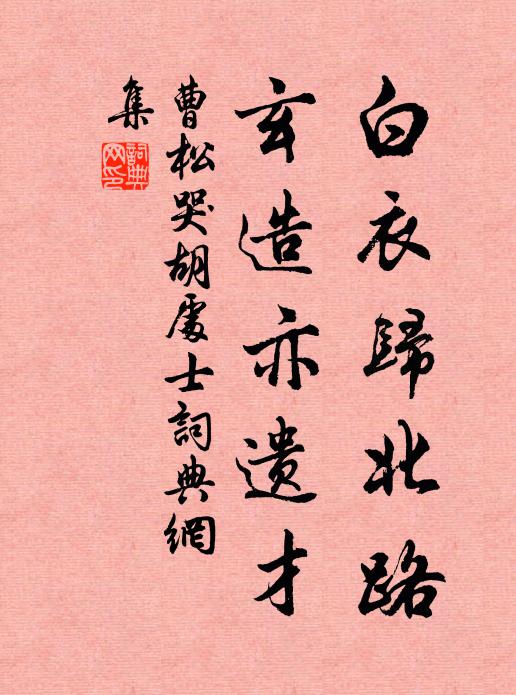 白衣歸北路
玄造亦遺才
曹松哭胡處士詞典網
集
詞典
网印